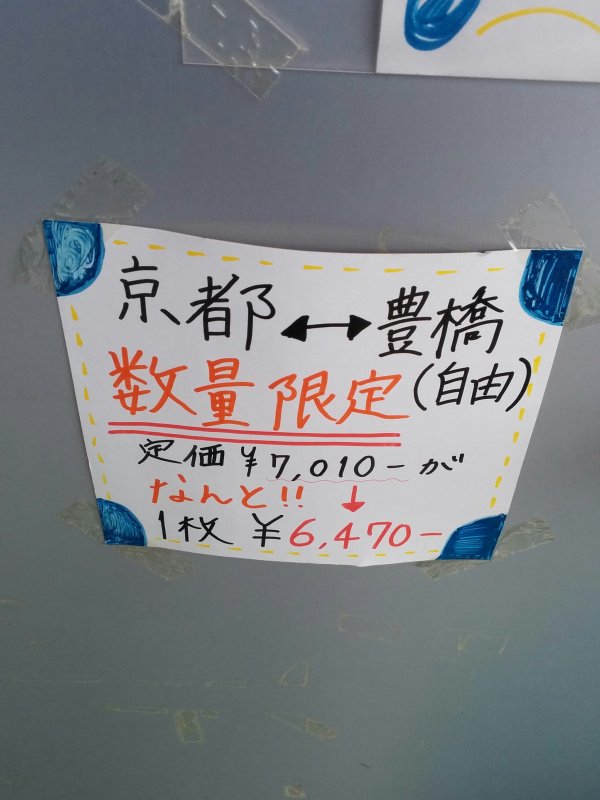 京都↔豊橋
数量限定(自由)
定価¥7,010-が
なんと!!↓
1枚 ¥6,470-